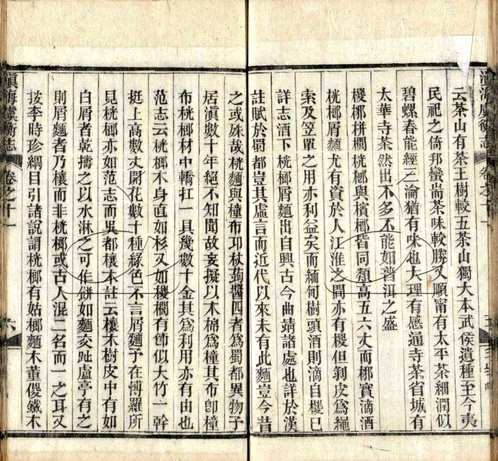 滇海虞衡志
云茶山有茶王樹較五茶山獨大本武侯遺種至今夷
民祀之倚邦蠻耑茶味較勝又順甯有太平茶細潤似
碧螺春能經三瀹猶有味也大理有感通寺茶省城有
太華寺茶然出不多不能如普洱之盛
榔栟櫚桄榔與檳榔舊同類高五六丈而椰實滴酒
桄榔屑麵尤有資於人江淮之間亦有椶但剥皮爲繩
索及笠罩之用亦利益矣而緬甸樹頭酒則滴自椶已
詳志酒下桄榔屑麵出自興古今曲靖諸處也詳於漢
註賦於蜀都豈其虛言而近代以來未有此麵豈今昔
之或殊哉桄麵與橦布卭杖蒟醬四者爲蜀都異物予
居滇數十年絕不知聞故妄擬以木棉爲橦其布卽橦
布桄榔材中轎扛一具幾數十金其爲利用亦有由也
范志云桄榔木身直如杉又如椶櫚有節似大竹一幹
挺上高數丈開花數十穗綠色不言屑麵予在博羅所
見桄榔亦如范志而異都欀木註云欀木樹皮中有如
白屑者乾擣之以水淋之可作餅如麵交趾盧亭有之
則屑麵者乃欀而非桄榔或古人混二名而一之耳又
按李時珍綱目引諸說謂桄榔有姑榔麵木董㯶鐵木
滇海虞衡志 卷之十一 六